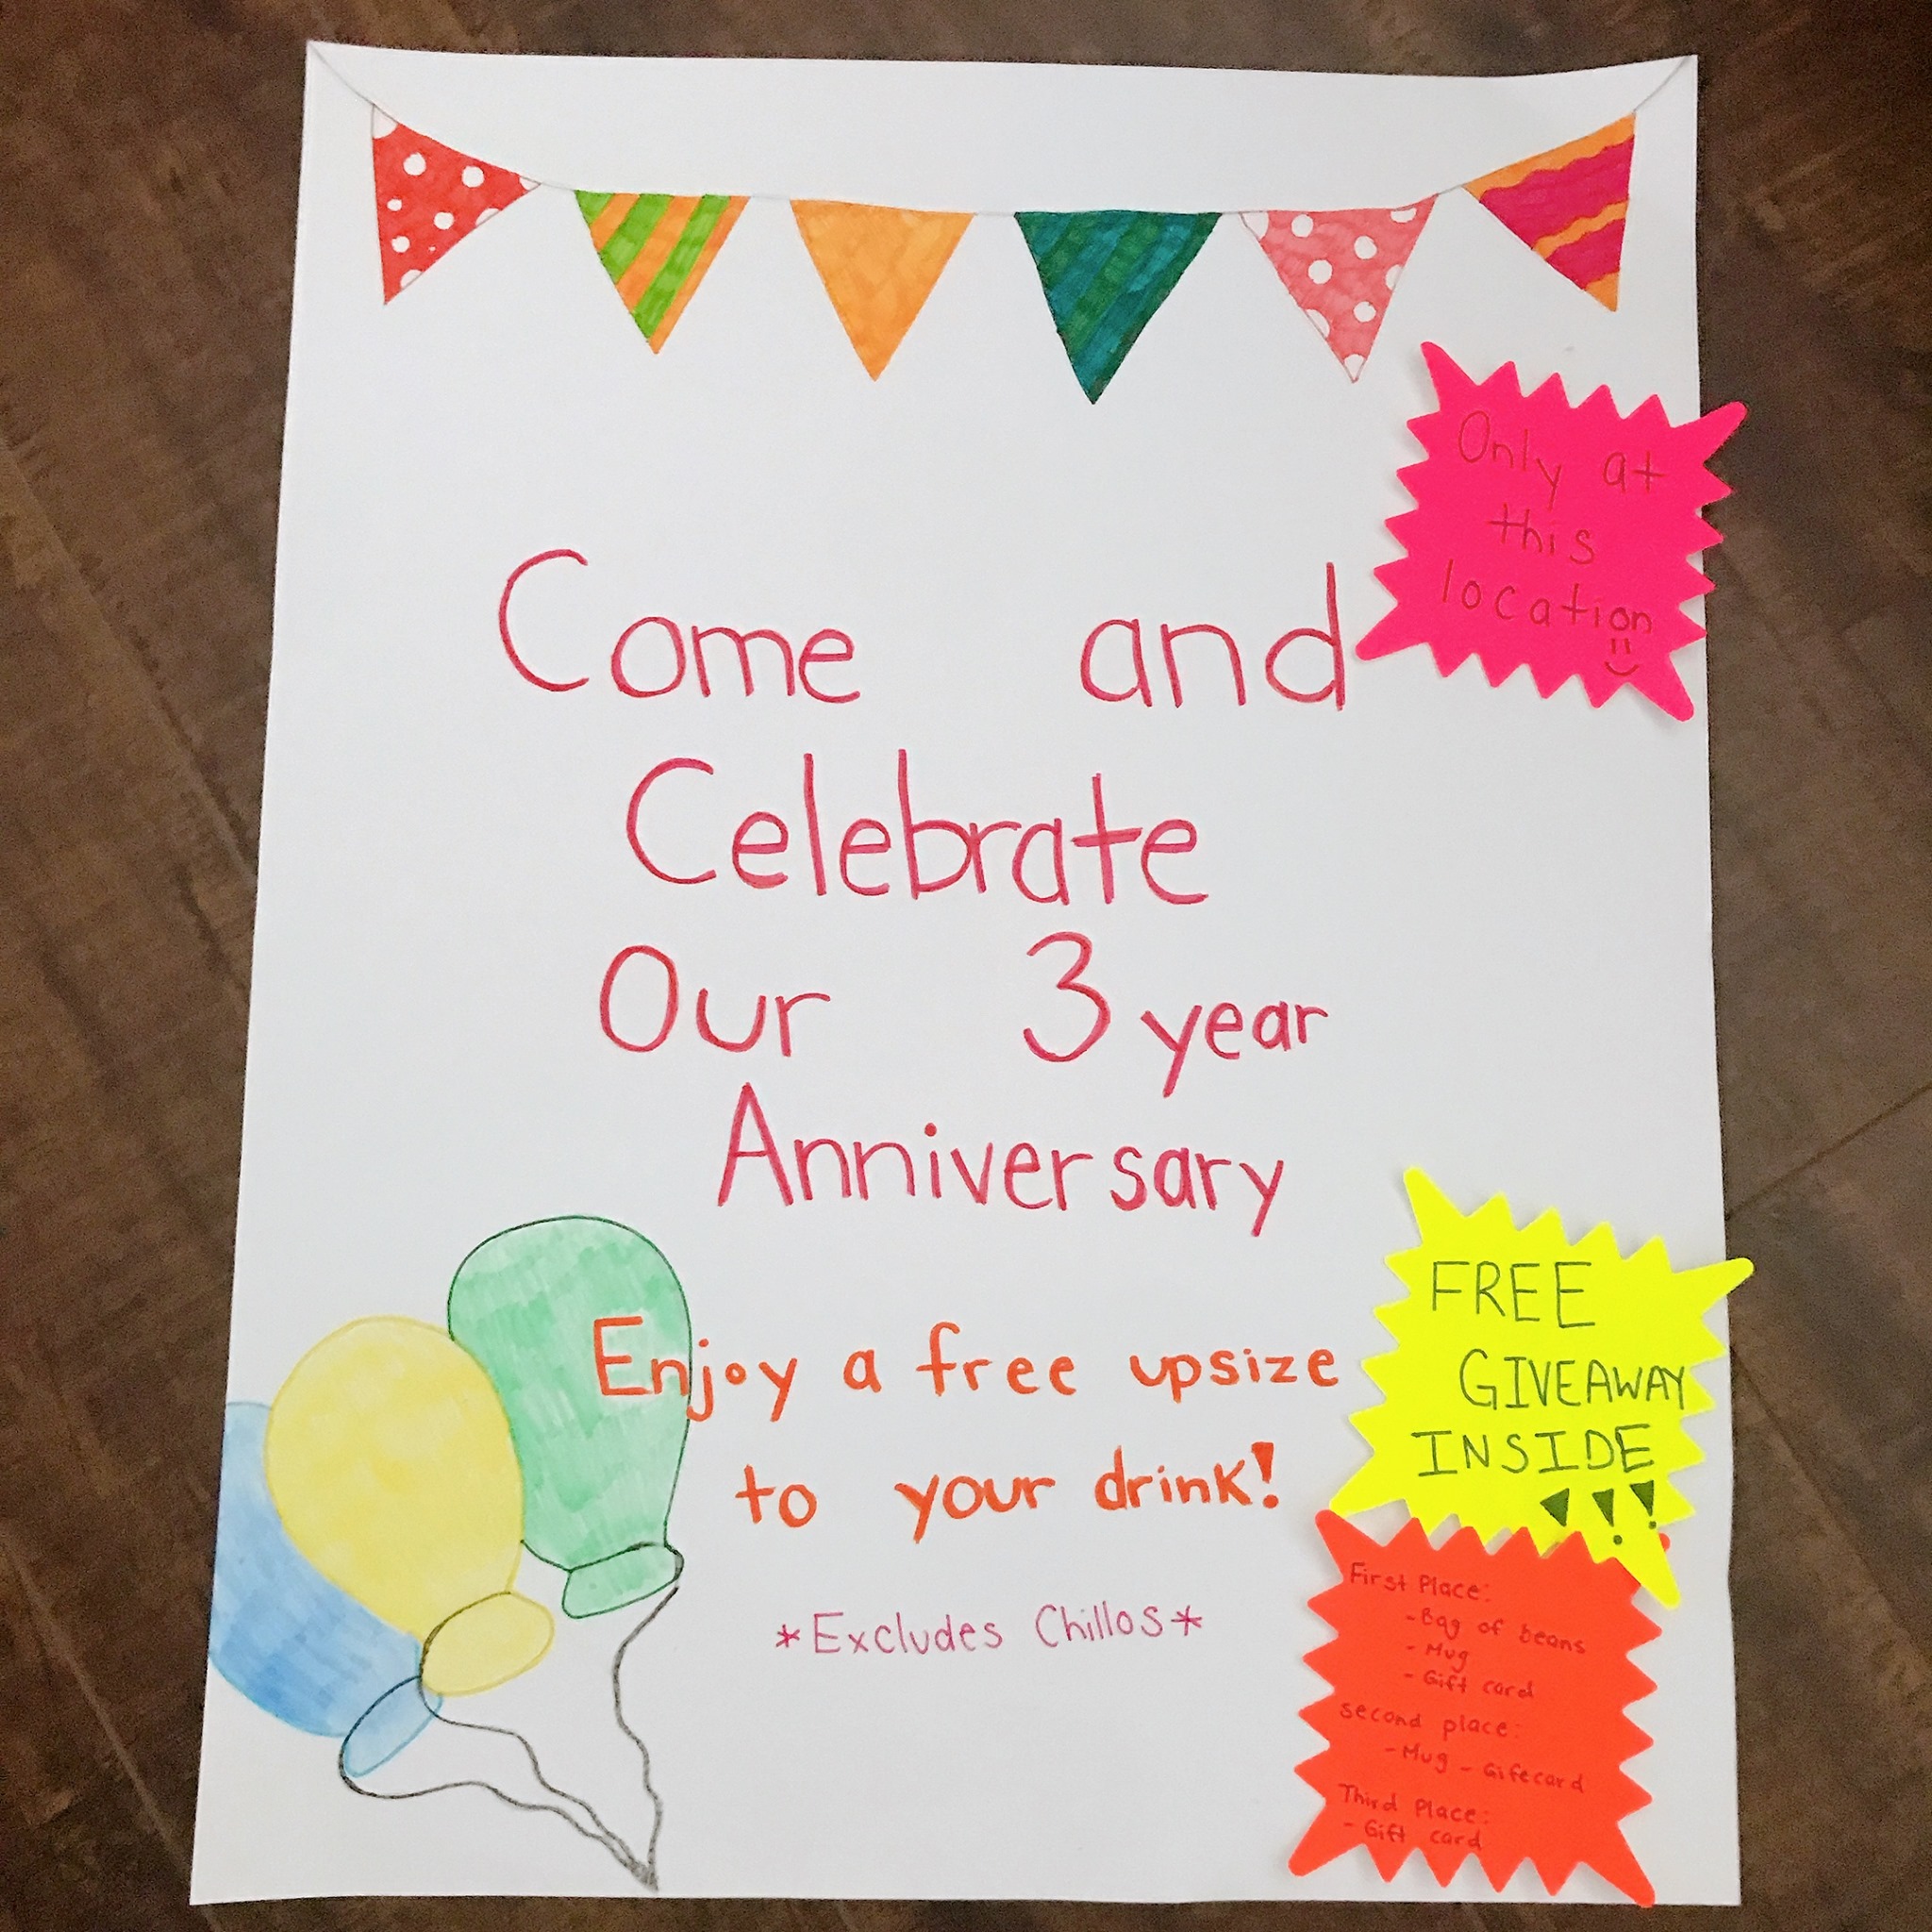 Only at
this
location
Come and
Celebrate
Our 3 year
Anniversary
Enjoy a free upsize
to your drink!
*Excludes Chillos*
FREE
GIVEAWAY
INSIDE
!!!
First Place:
- Bag of beans
- Mug
- Gift card
second place:
- Mug - Gifecard
Third Place:
- Gift card